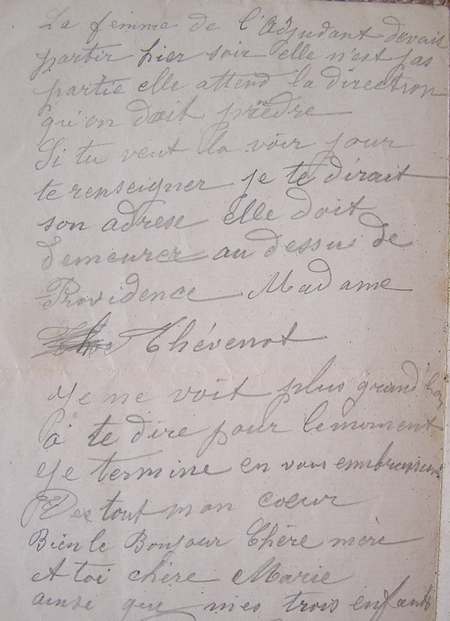 La femme de l'Adjudant devait
partir hier soir elle n'est pas
partie elle attend la direction
qu'on doit prèdre
Si tu veut la voir pour
te renseigner je te dirait
son adrese elle doit
demeurer au dessus de
Providence Madame
Thévenot
Je ne voit plus grand
à te dire pour lemoment
Je termine en vous embrassant
De tout mon coeur
Bien le Bonjour Chère mère
A toi chère Marie
ainse que mes trois enfants